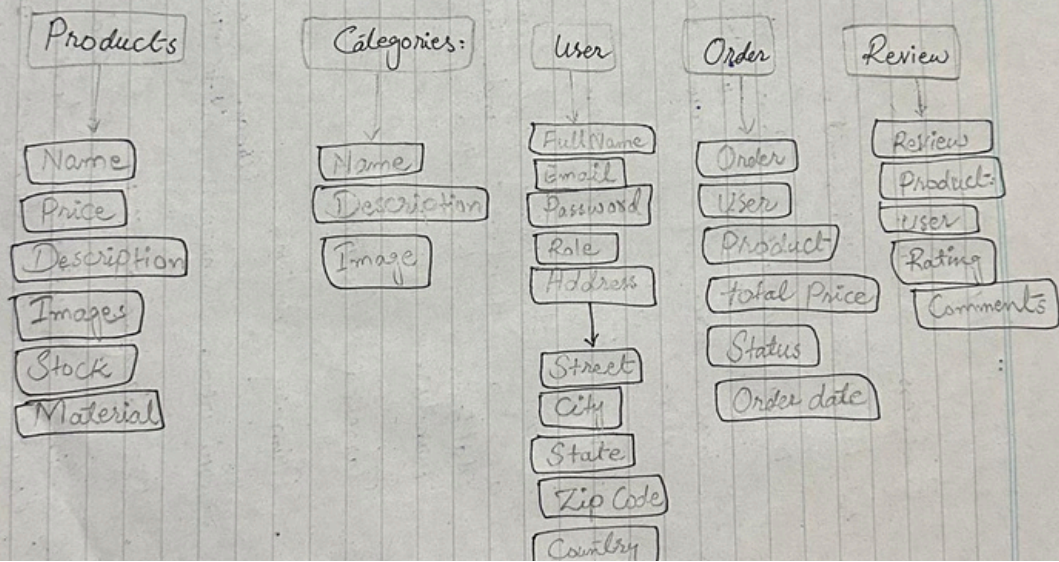 Products
Name
Price
Description
Images
Stock
Material
Categories:
Name
Description
Image
User
Full Name
Email
Password
Role
Address
Street
City
State
Zip Code
Country
Order
Order
User
Product
total Price
Status
Order date
Review
Review
Product:
User
Rating
Comments
: